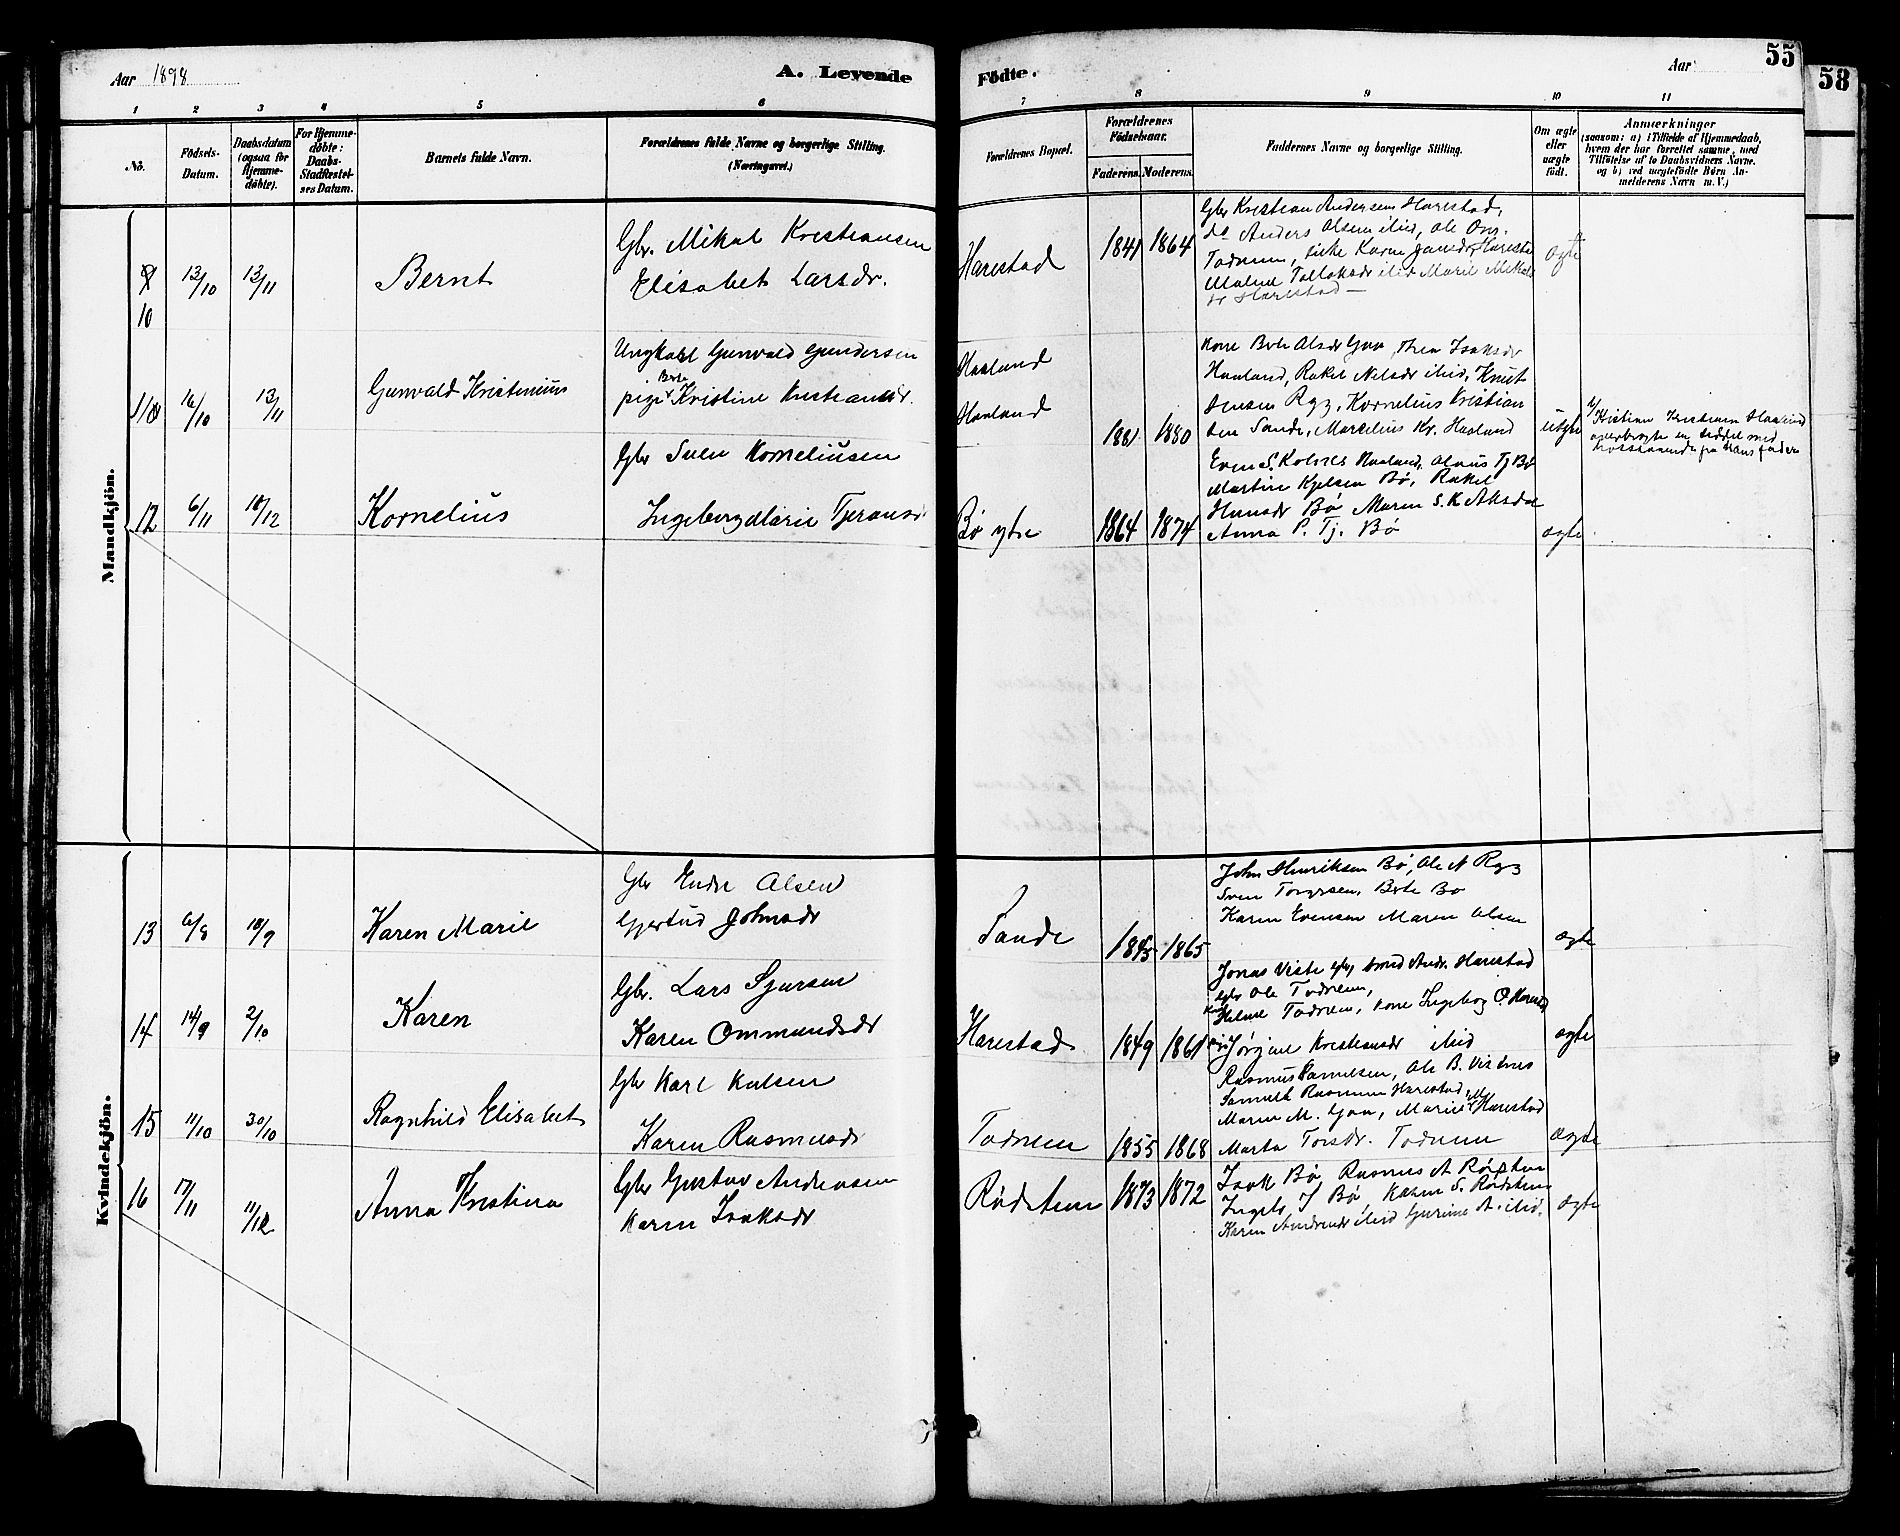 Aar 1898
A. Levende
Fødte.
Aar
55
58
1 2 3 4 5 6 7 8 9 10 11
No.
Fødsels-Datum.
Daabsdatum (ogsaa for Hjemme-døbte).
For Hjemme-døbte: Daabs-Stadfæstel-ses Datum.
Barnets fulde Navn.
Forældrenes fulde Navne og borgerlige Stilling. (Næringsvei.)
Forældrenes Bopæl.
Forældrenes Fødselsaar.
Faderens. Moderens.
Faddernes Navne og borgerlige Stilling.
Om ægte eller uægte født.
Anmærkninger
(saasom: a) i Tilfælde af Hjemmedaab, hvem der har forrettet samme, med Tilføielse af to Daabsvidners Navne. og b) ved uægtefødte Børn An-melderens Navn m. V.)
Mandkjøn.
10 13/10 13/11 Bernt
Gbr. Mikal Kristiansen
Elisabet Larsdr.
Harestad 1841 1864
Gbr Kristian Andersen Harestad,
do Anders Olsen ibid, Ole
Todnem, Karen Harestad
Malene Tollaksdr ibid Marie Mikals
dr Harestad
ægte
16/10 13/11 Gunvald Kristinius
Ungkarl Gunvald Gundersen
pige Berte Kristine Kristiansdr.
Haaland
Haaland 1881 1880
Kone Berte Olsdr Goa, Isaksdr
Haaland, Rakel Nilsdr ibid, Knut
Jensen Ryg, Kornelius Kristian
sen Sande, Marselius Kr. Haaland
uægte
Kristian Kristiansen Haaland
overbragte en seddel med
fra Hans fader
12 6/11 18/12 Kornelius
Gbr Sven Korneliusen
Ingeborg Marie Tjeransd
Bø ytre 1864 1874
Even S. Kolnes Haaland, Olaus Tj Bø
Martin Kjelsen Bø, Rakel
Hansdr Bø Maren S. K Aksdal
Anna P. Tj. Bø
ægte
Kvindekjøn.
13 6/8 18/9 Karen Marie
Gbr Endre Olsen
Gjertrud Johnsdr
Sande 1845 1865
John Henriksen Bø, Ole N Ryg
Sven Torgersen, Berte Bø
Karen Evensen Maren Olsen
ægte
14 14/9 2/10 Karen
Gbr. Lars Sjursen
Karen Ommundsdr
Harestad 1849 1861
Jonas Viste gbr, Andr. Harestad
gbr Ole Todnem,
Helene Todnem, kone Ingeborg O. Harestad
Jørgine Kristiansdr ibid
ægte
15 11/10 30/10 Ragnhild Elisabet
Gbr Karl Kalsen
Karen Rasmusdr
Todnem 1855 1868
Rasmus Danielsen, Ole B. Vistnes
Samuel Rasmusen Harestad,
Maren M. Goa, Marie Harestad
Marta Torsdr. Todnem
ægte
16 17/11 11/12 Anna Kristina
Gbr Gustav Andersen
Karen Isaksdr
Rødstern 1873 1872
Isak Bø, Rasmus A Rødsten
Ingeb. J Bø, Karen S. Rødsten
Karen Andrendr ibid Gurine A. ibid.
ægte